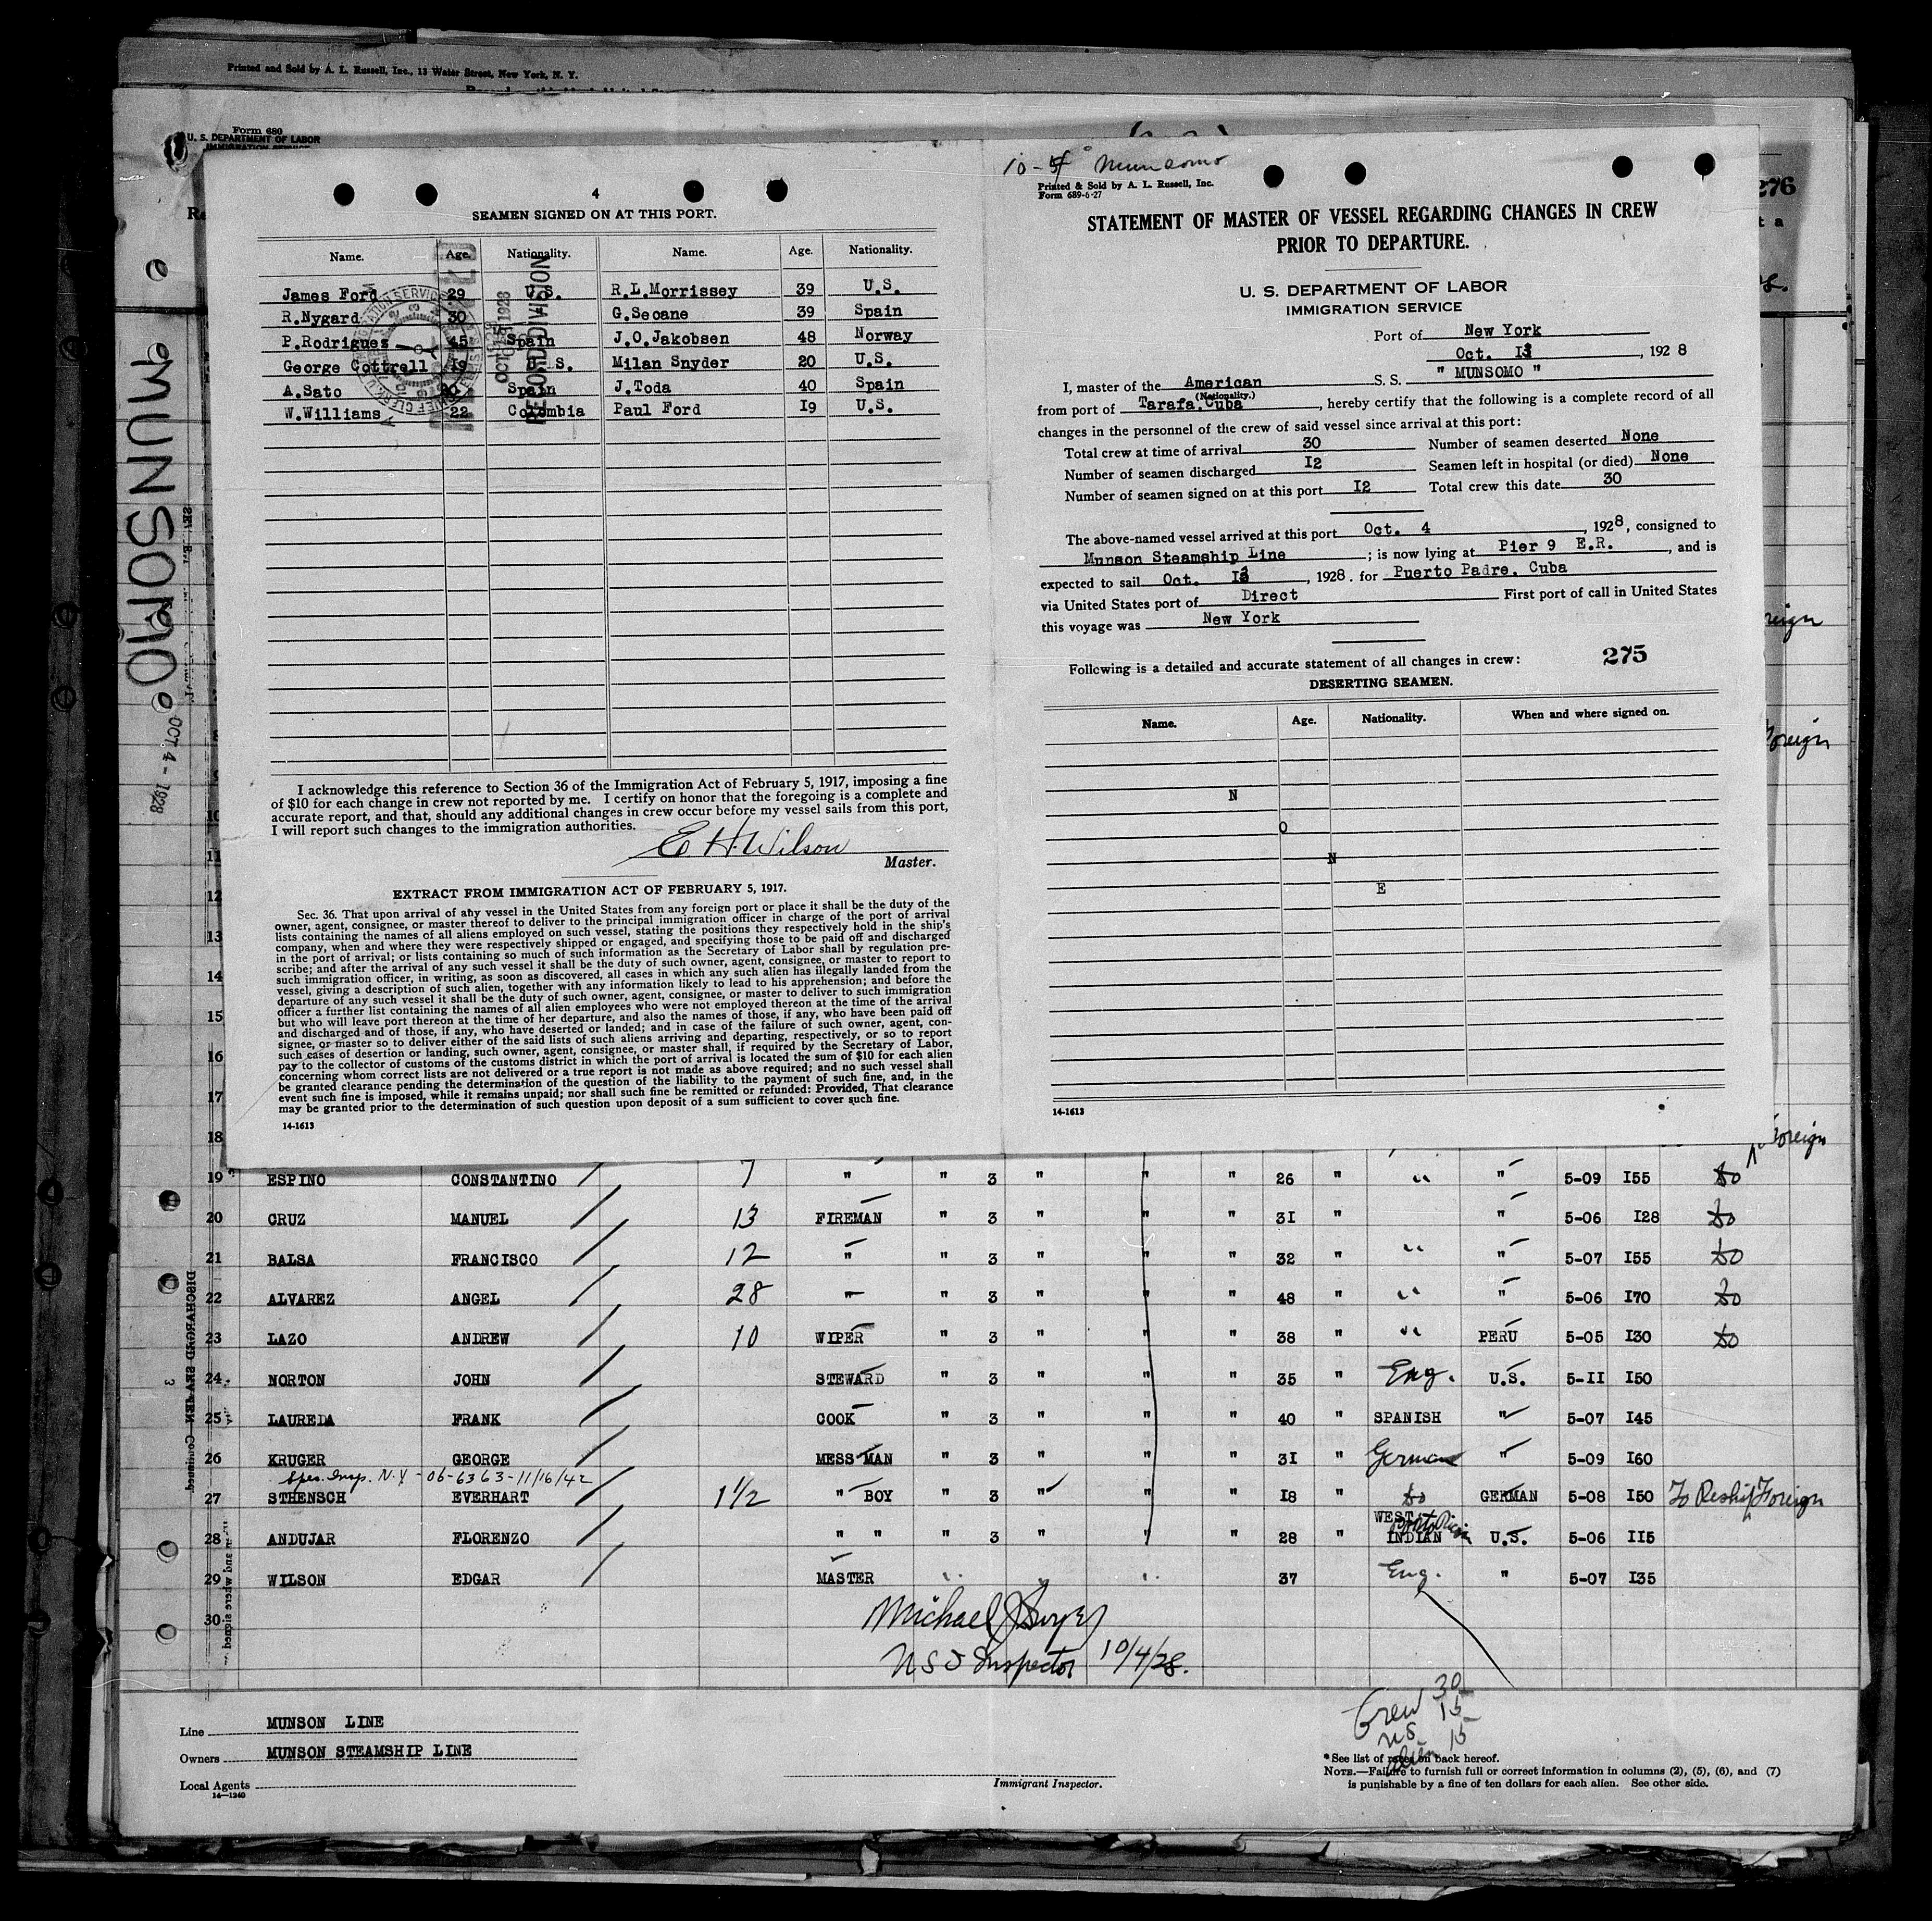 Printed and Sold by A. L. Russell, Inc., 13 Water Street, New York, N. Y.
Form 680
U. S. DEPARTMENT OF LABOR
IMMIGRATION SERVICE
276
MUNSOMO
OCT 4 - 1928
4
SEAMEN SIGNED ON AT THIS PORT.
Name. Age. Nationality. Name. Age. Nationality.
James Ford 29 U.S. R.L.Morrissey 39 U.S.
R.Nygard 30 G.Seoane 39 Spain
P.Rodriguez 45 Spain J.O.Jakobsen 48 Norway
George Cottrell 19 U.S. Milan Snyder 20 U.S.
A.Sato Spain J.Toda 40 Spain
W.Williams 22 Colombia Paul Ford 19 U.S.
RECORD DIVISION
I acknowledge this reference to Section 36 of the Immigration Act of February 5, 1917, imposing a fine
of $10 for each change in crew not reported by me. I certify on honor that the foregoing is a complete and
accurate report, and that, should any additional changes in crew occur before my vessel sails from this port,
I will report such changes to the immigration authorities.
E H Wilson
Master.
EXTRACT FROM IMMIGRATION ACT OF FEBRUARY 5, 1917.
Sec. 36. That upon arrival of any vessel in the United States from any foreign port or place it shall be the duty of the
owner, agent, consignee, or master thereof to deliver to the principal immigration officer in charge of the port of arrival
lists containing the names of all aliens employed on such vessel, stating the positions they respectively hold in the ship's
company, when and where they were respectively shipped or engaged, and specifying those to be paid off and discharged
in the port of arrival; or lists containing so much of such information as the Secretary of Labor shall by regulation pre-
scribe; and after the arrival of any such vessel it shall be the duty of such owner, agent, consignee, or master to report to
such immigration officer, in writing, as soon as discovered, all cases in which any such alien has illegally landed from the
vessel, giving a description of such alien, together with any information likely to lead to his apprehension; and before the
departure of any such vessel it shall be the duty of such owner, agent, consignee, or master to deliver to such immigration
officer a further list containing the names of all alien employees who were not employed thereon at the time of the arrival
but who will leave port thereon at the time of her departure, and also the names of those, if any, who have been paid off
and discharged and of those, if any, who have deserted or landed; and in case of the failure of such owner, agent, con-
signee, or master so to deliver either of the said lists of such aliens arriving and departing, respectively, or so to report
such cases of desertion or landing, such owner, agent, consignee, or master shall, if required by the Secretary of Labor,
pay to the collector of customs of the customs district in which the port of arrival is located the sum of $10 for each alien
concerning whom correct lists are not delivered or a true report is not made as above required; and no such vessel shall
be granted clearance pending the determination of the question of the liability to the payment of such fine, and, in the
event such fine is imposed, while it remains unpaid; nor shall such fine be remitted or refunded: Provided, That clearance
may be granted prior to the determination of such question upon deposit of a sum sufficient to cover such fine.
14-1613
10-4 Munsomo
Printed & Sold by A. L. Russell, Inc.
Form 689-6-27
STATEMENT OF MASTER OF VESSEL REGARDING CHANGES IN CREW
PRIOR TO DEPARTURE.
U. S. DEPARTMENT OF LABOR
IMMIGRATION SERVICE
Port of New York
Oct. 13, 1928
I, master of the American S. S. " MUNSOMO "
(Nationality.)
from port of Tarafa,Cuba, hereby certify that the following is a complete record of all
changes in the personnel of the crew of said vessel since arrival at this port:
Total crew at time of arrival 30 Number of seamen deserted None
Number of seamen discharged 12 Seamen left in hospital (or died) None
Number of seamen signed on at this port 12 Total crew this date 30
The above-named vessel arrived at this port Oct. 4, 1928, consigned to
Munson Steamship Line ; is now lying at Pier 9 E.R., and is
expected to sail Oct. 13, 1928. for Puerto Padre, Cuba
via United States port of Direct First port of call in United States
this voyage was New York
Following is a detailed and accurate statement of all changes in crew: 275
DESERTING SEAMEN.
Name. Age. Nationality. When and where signed on.
N
O
N
E
14-1613
reign
Foreign
Foreign
11
12
13
14
15
16
17
18
19 ESPINO CONSTANTINO 7 " " 3 " " " 26 " " " 5-09 155 do
20 CRUZ MANUEL 13 FIREMAN " 3 " " " 31 " " 5-06 128 do
21 BALSA FRANCISCO 12 " " 3 " " " 32 " " " 5-07 155 do
22 ALVAREZ ANGEL 28 " " 3 " " " 48 " " " 5-06 170 do
23 LAZO ANDREW 10 WIPER " 3 " " " 38 " " PERU 5-05 130 do
24 NORTON JOHN STEWARD " 3 " " " 35 " Eng. U.S. 5-11 150
25 LAUREDA FRANK COOK " 3 " " " 40 " SPANISH " 5-07 145
26 KRUGER GEORGE MESS MAN " 3 " " " 31 " German " 5-09 160
Spec. Insp. N.Y - 06-6363-11/16/42
27 STHENSCH EVERHART 1 1/2 " BOY " 3 " " " 18 " do GERMAN 5-08 150 To Reship Foreign
28 ANDUJAR FLORENZO " " " 3 " " " 28 " WEST INDIAN Porto Rican U.S. 5-06 115
29 WILSON EDGAR MASTER 37 Eng. " 5-07 135
30
Michael
U S I Inspector 10/4/28.
Crew 30
US 15
Alien 15
Line MUNSON LINE
Owners MUNSON STEAMSHIP LINE
Local Agents
14—1240
Immigrant Inspector.
*See list of races on back hereof.
NOTE.—Failure to furnish full or correct information in columns (2), (5), (6), and (7)
is punishable by a fine of ten dollars for each alien. See other side.